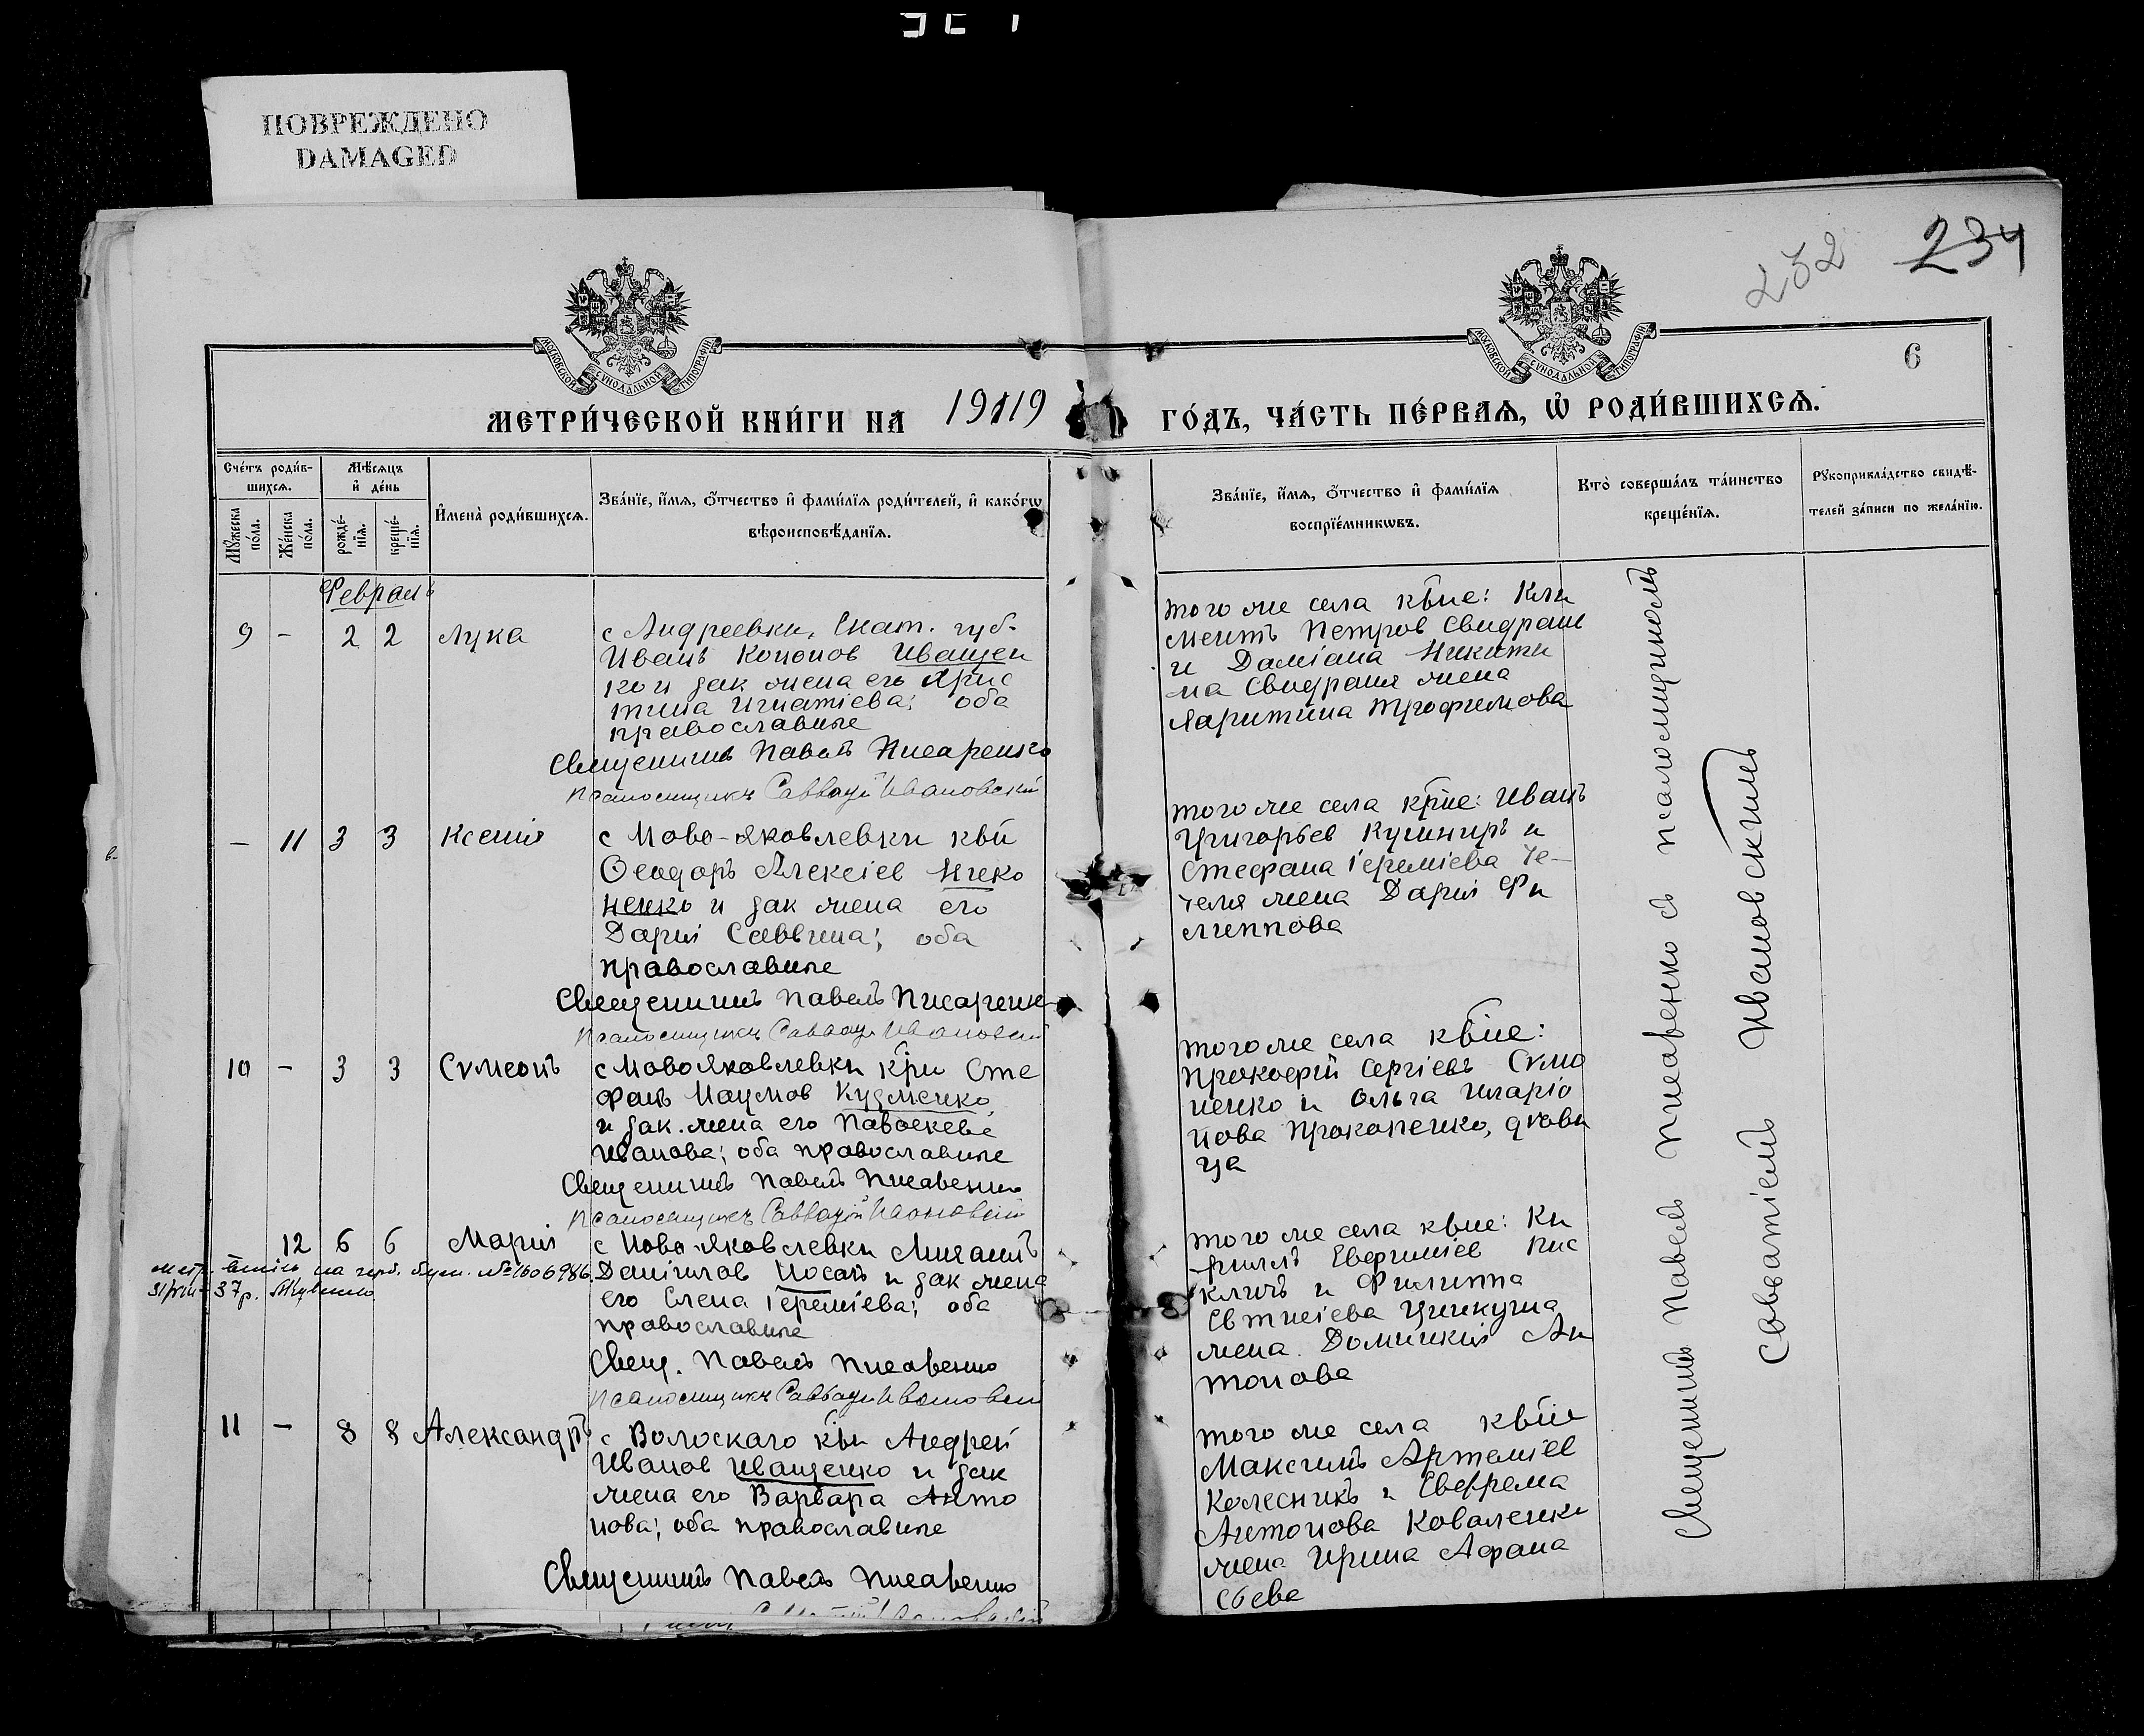 ПОВРЕЖДЕНО
DAMAGED
232 234
МОСКОВСКОЙ СѴНОДАЛЬНОЙ ТИПОГРАФІИ
МОСКОВСКОЙ СѴНОДАЛЬНОЙ ТИПОГРАФІИ
6
МЕТРИ́ЧЕСКОЙ КНИ́ГИ НА 1919 ГО́ДЪ, ЧА́СТЬ ПЕ́РВАѦ, Ѡ҆ РОДИ́ВШИХСѦ.
Сче́тъ роди́в-
шихсѧ.
Мꙋ́жеска по́ла.
Же́нска по́ла.
Мѣ́сѧцъ
и҆ де́нь
рожде́-
нїѧ.
креще́-
нїѧ.
И҆мена̀ роди́вшихсѧ.
Зва́нїе, и҆́мѧ, ѻ҆́тчество и҆ фами́лїѧ роди́телей, и҆ како́гѡ
вѣроисповѣ́данїѧ.
Зва́нїе, и҆́мѧ, ѻ҆́тчество и҆ фами́лїѧ
воспрїе́мникѡвъ.
Кто̀ соверша́лъ та́инство
креще́нїѧ.
Рꙋкоприкла́дство свидѣ́-
телей за́писи по жела́нїю.
Февраль
9 - 2 2 Лука
с Андреевки, Екат. губ.
Иванъ Кононов Иващен
ко и зак жена его Хрис
тина Игнатіева; оба
православные
Священникъ Павелъ Писаренко
Псаломщикъ Савватій Ивановскій
того же села крне: Кли
ментъ Петров Свидрань
и Даміана Никити
на Свидраня жена
Харитина Трофимова
- 11 3 3 Ксенія
с Ново-Яковлевки крн
Ѳеодоръ Алексіев
и зак жена его
Дарія Саввина; оба
православные
Священникъ Павелъ Писаренк
Псаломщикъ Савватій Ивановскій
того же села крне: Иванъ
Григорьев Кушниръ и
Стефана Іереміева Че-
челя жена Дарія Фи
липпова
10 - 3 3 Сѵмеонъ
с Ново Яковлевки крн Сте
фанъ Наумов Кузменко
и зак. жена его Параскева
Иванова; оба православные
Священникъ Павелъ Писаренко
Псаломщикъ Савватій Ивановскій
того же села крне:
Прокофій Сергіевъ Сѵмо
ненко и Ольга Иларіо
нова Прокопенко, дѣви
ца
12 6 6 Марія
на герб. бум. № 1606986
31/VIII-37р.
с Ново Яковлевки Михаилъ
Даниилов Носач и зак жена
его Елена Іереміева; оба
православные
Свящ. Павелъ Писаренко
Псаломщикъ Савватій Ивановскій
того же села крне: Ки
риллъ Евфиміев Кис
кличъ и Филиппа
Евтихіева
жена Домникія Ан
тонова
11 - 8 8 Александръ
с Волоскаго крн Андрей
Иванов Иващенко и зак
жена его Варвара Анто
нова; оба православные
Священникъ Павелъ Писаренко
того же села крне
Максимъ Артеміев
Колесникъ и Евфрема
Антонова Коваленко
жена Ирина Афана
сьева
Священникъ Павелъ Писаренко съ псаломщикомъ
Савватіемъ Ивановскимъ